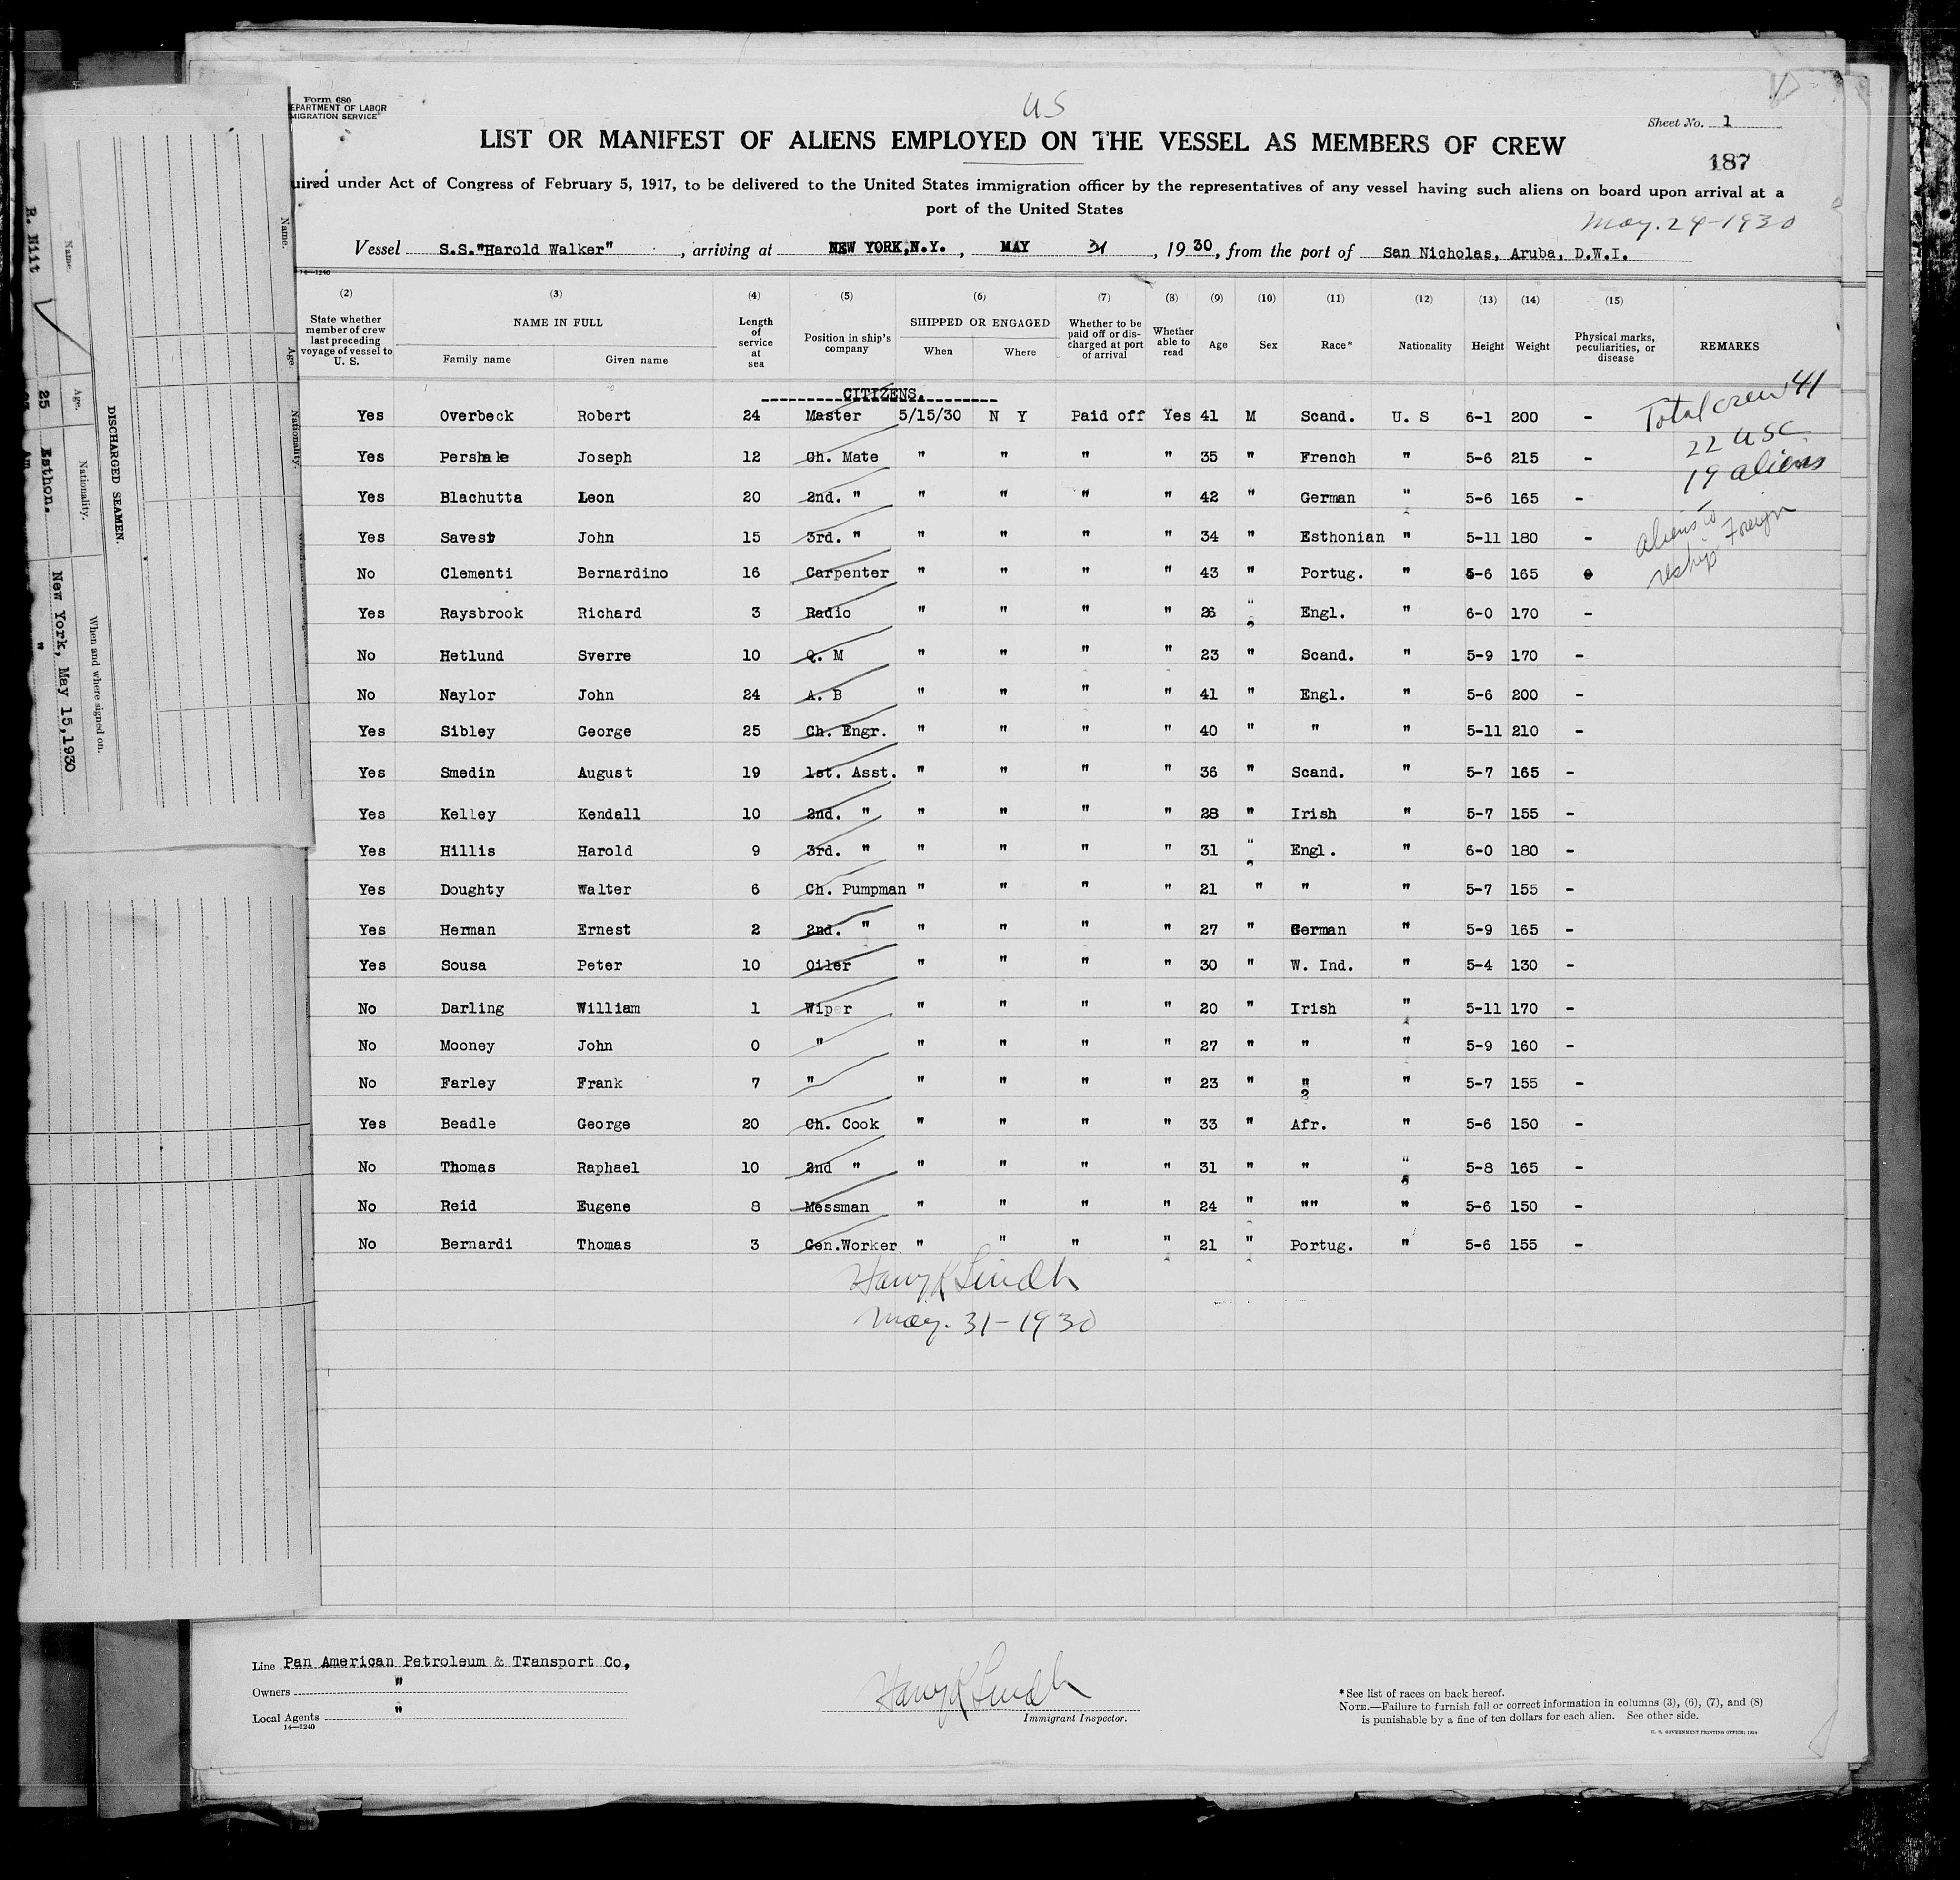 Form 680
EPARTMENT OF LABOR
MIGRATION SERVICE
US
Sheet No. 1
LIST OR MANIFEST OF ALIENS EMPLOYED ON THE VESSEL AS MEMBERS OF CREW
187
uired under Act of Congress of February 5, 1917, to be delivered to the United States immigration officer by the representatives of any vessel having such aliens on board upon arrival at a
port of the United States
May. 24-1930
Vessel S.S."Harold Walker", arriving at NEW YORK,N.Y., MAY 31, 1930, from the port of San Nicholas, Aruba, D.W.I.
14-1240
(2) (3) (4) (5) (6) (7) (8) (9) (10) (11) (12) (13) (14) (15)
State whether member of crew last preceding voyage of vessel to U. S. NAME IN FULL Family name Given name Length of service at sea Position in ship's company SHIPPED OR ENGAGED When Where Whether to be paid off or discharged at port of arrival Whether able to read Age Sex Race* Nationality Height Weight Physical marks, peculiarities, or disease REMARKS
CITIZENS.
Yes Overbeck Robert 24 Master 5/15/30 N Y Paid off Yes 41 M Scand. U. S 6-1 200 - Total crew 41
Yes Pershake Joseph 12 Ch. Mate " " " " 35 " French " 5-6 215 - 22 USC
19 aliens
Yes Blachutta Leon 20 2nd. " " " " " 42 " German " 5-6 165 -
Yes Savest John 15 3rd. " " " " " 34 " Esthonian " 5-11 180 - aliens to
reship Foreign
No Clementi Bernardino 16 Carpenter " " " " 43 " Portug. " 5-6 165
Yes Raysbrook Richard 3 Radio " " " " 26 " Engl. " 6-0 170 -
No Hetlund Sverre 10 Q. M " " " " 23 " Scand. " 5-9 170 -
No Naylor John 24 A. B " " " " 41 " Engl. " 5-6 200 -
Yes Sibley George 25 Ch. Engr. " " " " 40 " " " 5-11 210 -
Yes Smedin August 19 1st. Asst. " " " " 36 " Scand. " 5-7 165 -
Yes Kelley Kendall 10 2nd. " " " " " 28 " Irish " 5-7 155 -
Yes Hillis Harold 9 3rd. " " " " " 31 " Engl. " 6-0 180 -
Yes Doughty Walter 6 Ch. Pumpman " " " " 21 " " " 5-7 155 -
Yes Herman Ernest 2 2nd. " " " " " 27 " German " 5-9 165 -
Yes Sousa Peter 10 Oiler " " " " 30 " W. Ind. " 5-4 130 -
No Darling William 1 Wiper " " " " 20 " Irish " 5-11 170 -
No Mooney John 0 " " " " " 27 " " " 5-9 160 -
No Farley Frank 7 " " " " " 23 " " " 5-7 155 -
Yes Beadle George 20 Ch. Cook " " " " 33 " Afr. " 5-6 150 -
No Thomas Raphael 10 2nd " " " " " 31 " " " 5-8 165 -
No Reid Eugene 8 Messman " " " " 24 " "" " 5-6 150 -
No Bernardi Thomas 3 Gen.Worker " " " " 21 " Portug. " 5-6 155 -
Harry R Lindh
May. 31-1930
Line Pan American Petroleum & Transport Co,
Owners "
Local Agents "
14-1240
Harry R Lindh
Immigrant Inspector.
*See list of races on back hereof.
NOTE.—Failure to furnish full or correct information in columns (3), (6), (7), and (8)
is punishable by a fine of ten dollars for each alien. See other side.
U. S. GOVERNMENT PRINTING OFFICE: 1930
DISCHARGED SEAMEN.
Name. Age. Nationality. When and where signed on.
R. Nit 25 Esthon. New York, May 15,1930
"
Name. Age. Nationality.